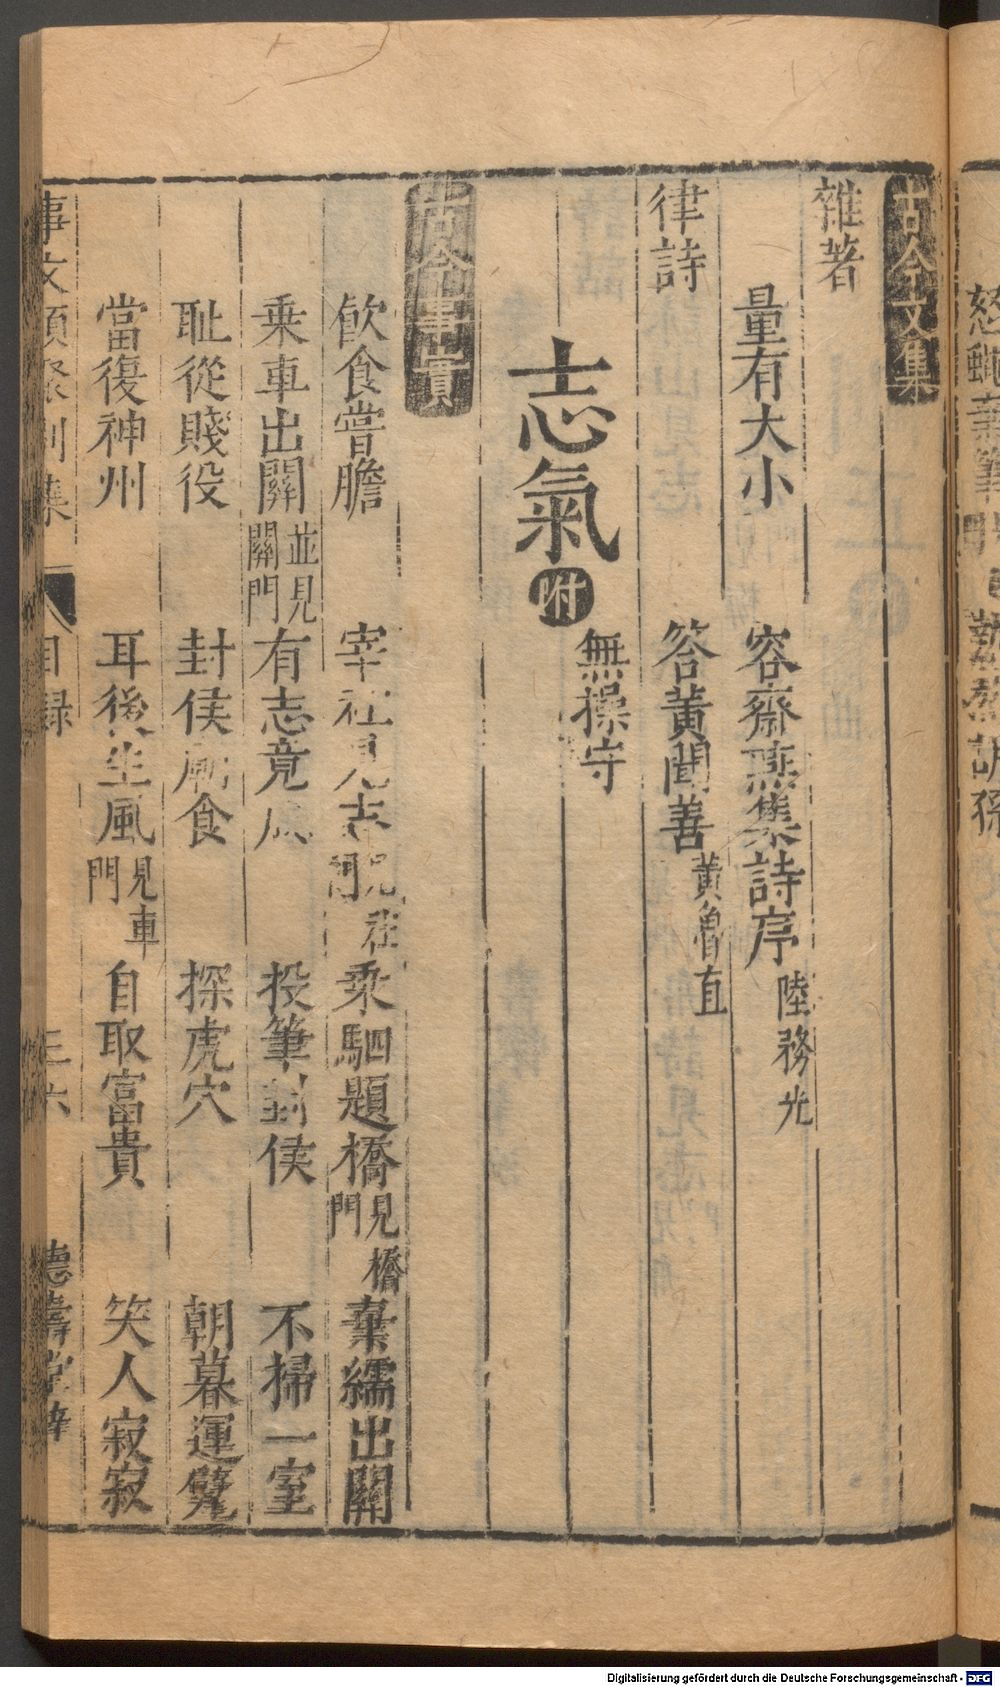 怒蠅棄筆
古今文集
雜著
量有大小　容齋燕集詩序　陸務光
律詩
答黃聞善　黃魯直
無操守
志氣　附
古今事實
飲食嘗膽　宰社見志　見社門　乘駟題橋　見橋門　棄繻出關
乘車出關　並見關門　有志竟成　投筆封侯　不掃一室
恥從賤役　封侯廟食　探虎穴　朝暮運甓
當復神州　耳後生風　見車門　自取富貴　笑人寂寂
事文類聚別集　目錄　三六　德壽堂梓
Digitalisierung gefördert durch die Deutsche Forschungsgemeinschaft - DFG